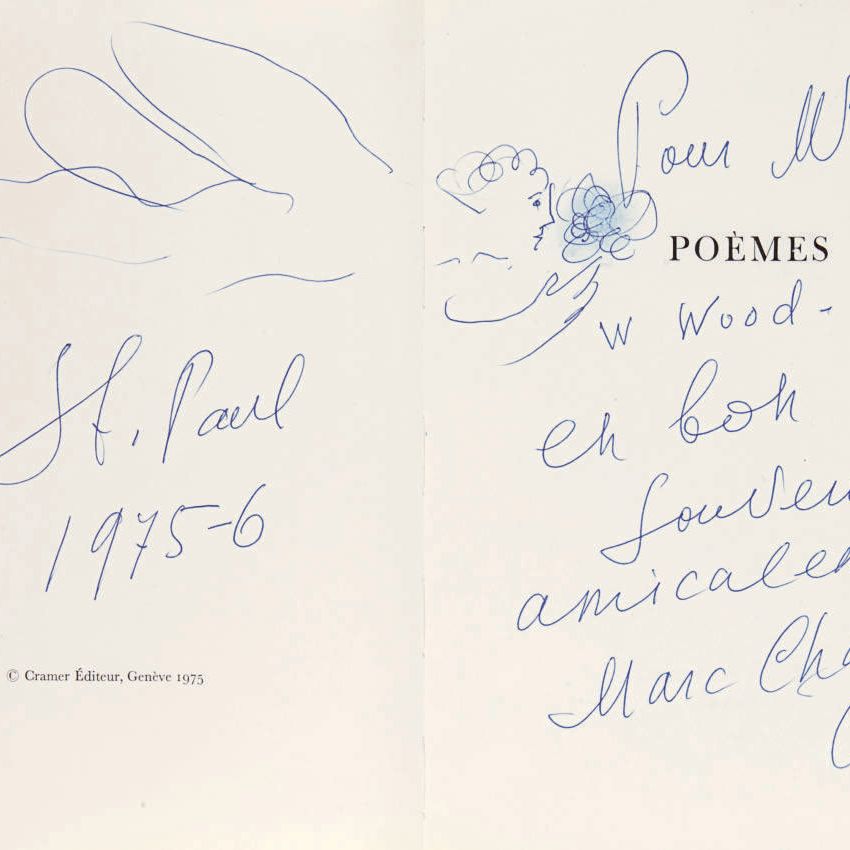 St. Paul
1975-6
© Cramer Éditeur, Genève 1975
Pour
POÈMES
W Wood-
en bon
Souven
amicalem
Marc Cha